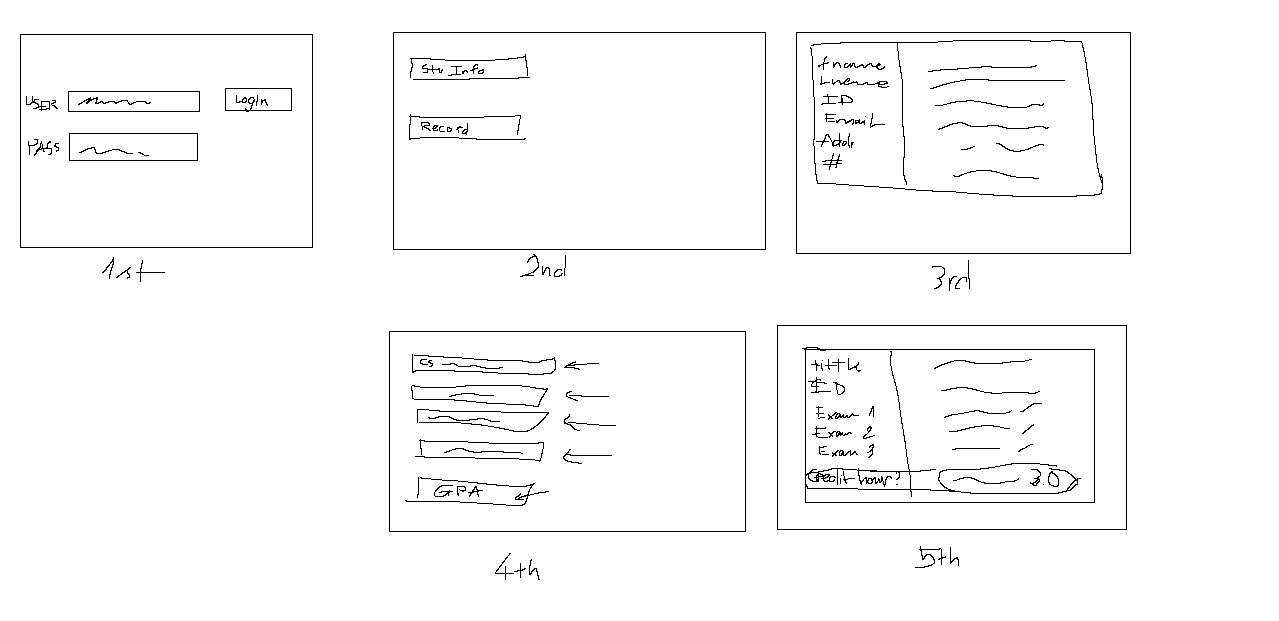 USER
LogIn
PASS
1st
Stu Info
Record
2nd
fname
Lname
ID
Email
Addr
#
3rd
CS
GPA
4th
tittle
ID
Exam 1
Exam 2
Exam 3
Credit-hour? 3.0
5th